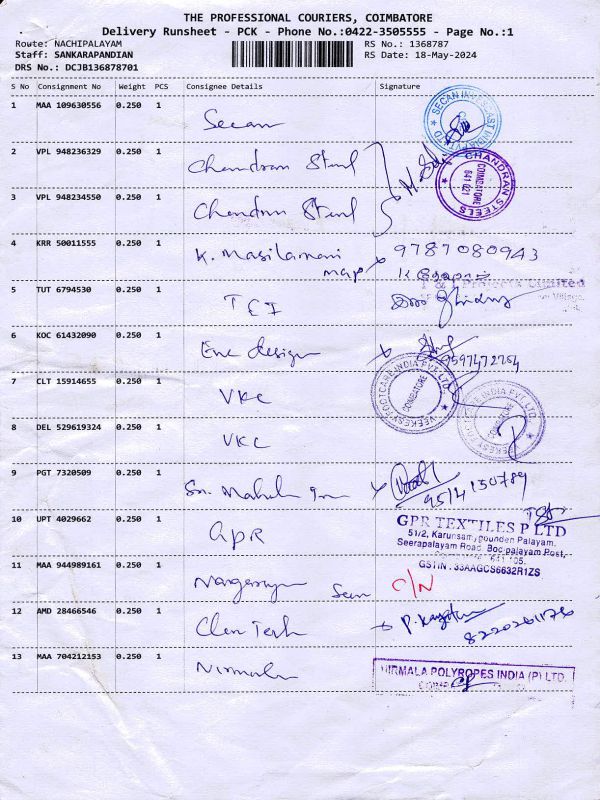 THE PROFESSIONAL COURIERS, COIMBATORE
Delivery Runsheet - PCK - Phone No.:0422-3505555 - Page No.:1
Route: NACHIPALAYAM RS No.: 1368787
Staff: SANKARAPANDIAN RS Date: 18-May-2024
DRS No.: DCJB136878701
S No Consignment No Weight PCS Consignee Details Signature
1 MAA 109630556 0.250 1 Secan
SECAN INVESCAST INDIA PVT LTD
2 VPL 948236329 0.250 1 Chandran Steel
CHANDRAN STEELS
COIMBATORE
641 021
3 VPL 948234550 0.250 1 Chandran Steel
4 KRR 50011555 0.250 1 K. Masilamani 9787080943
5 TUT 6794530 0.250 1
T & T Projects Limited
Village,
6 KOC 61432090 0.250 1 Enc design 9597472764
7 CLT 15914655 0.250 1 VKC
VEEKESY FOOTCARE INDIA PVT. LTD.
COIMBATORE
8 DEL 529619324 0.250 1 VKC
VEEKESY FOOTCARE INDIA PVT. LTD.
9 PGT 7320509 0.250 1 9514130789
10 UPT 4029662 0.250 1 GPR
GPR TEXTILES P LTD
51/2, Karunsamygounden Palayam,
Seerapalayam Road, Bodipalayam Post,
641 105.
GSTIN : 33AAGCS6632R1ZS
11 MAA 944989161 0.250 1 C/N
12 AMD 28466546 0.250 1 Clen Tech
13 MAA 704212153 0.250 1 Nirmala
NIRMALA POLYROPES INDIA (P) LTD.